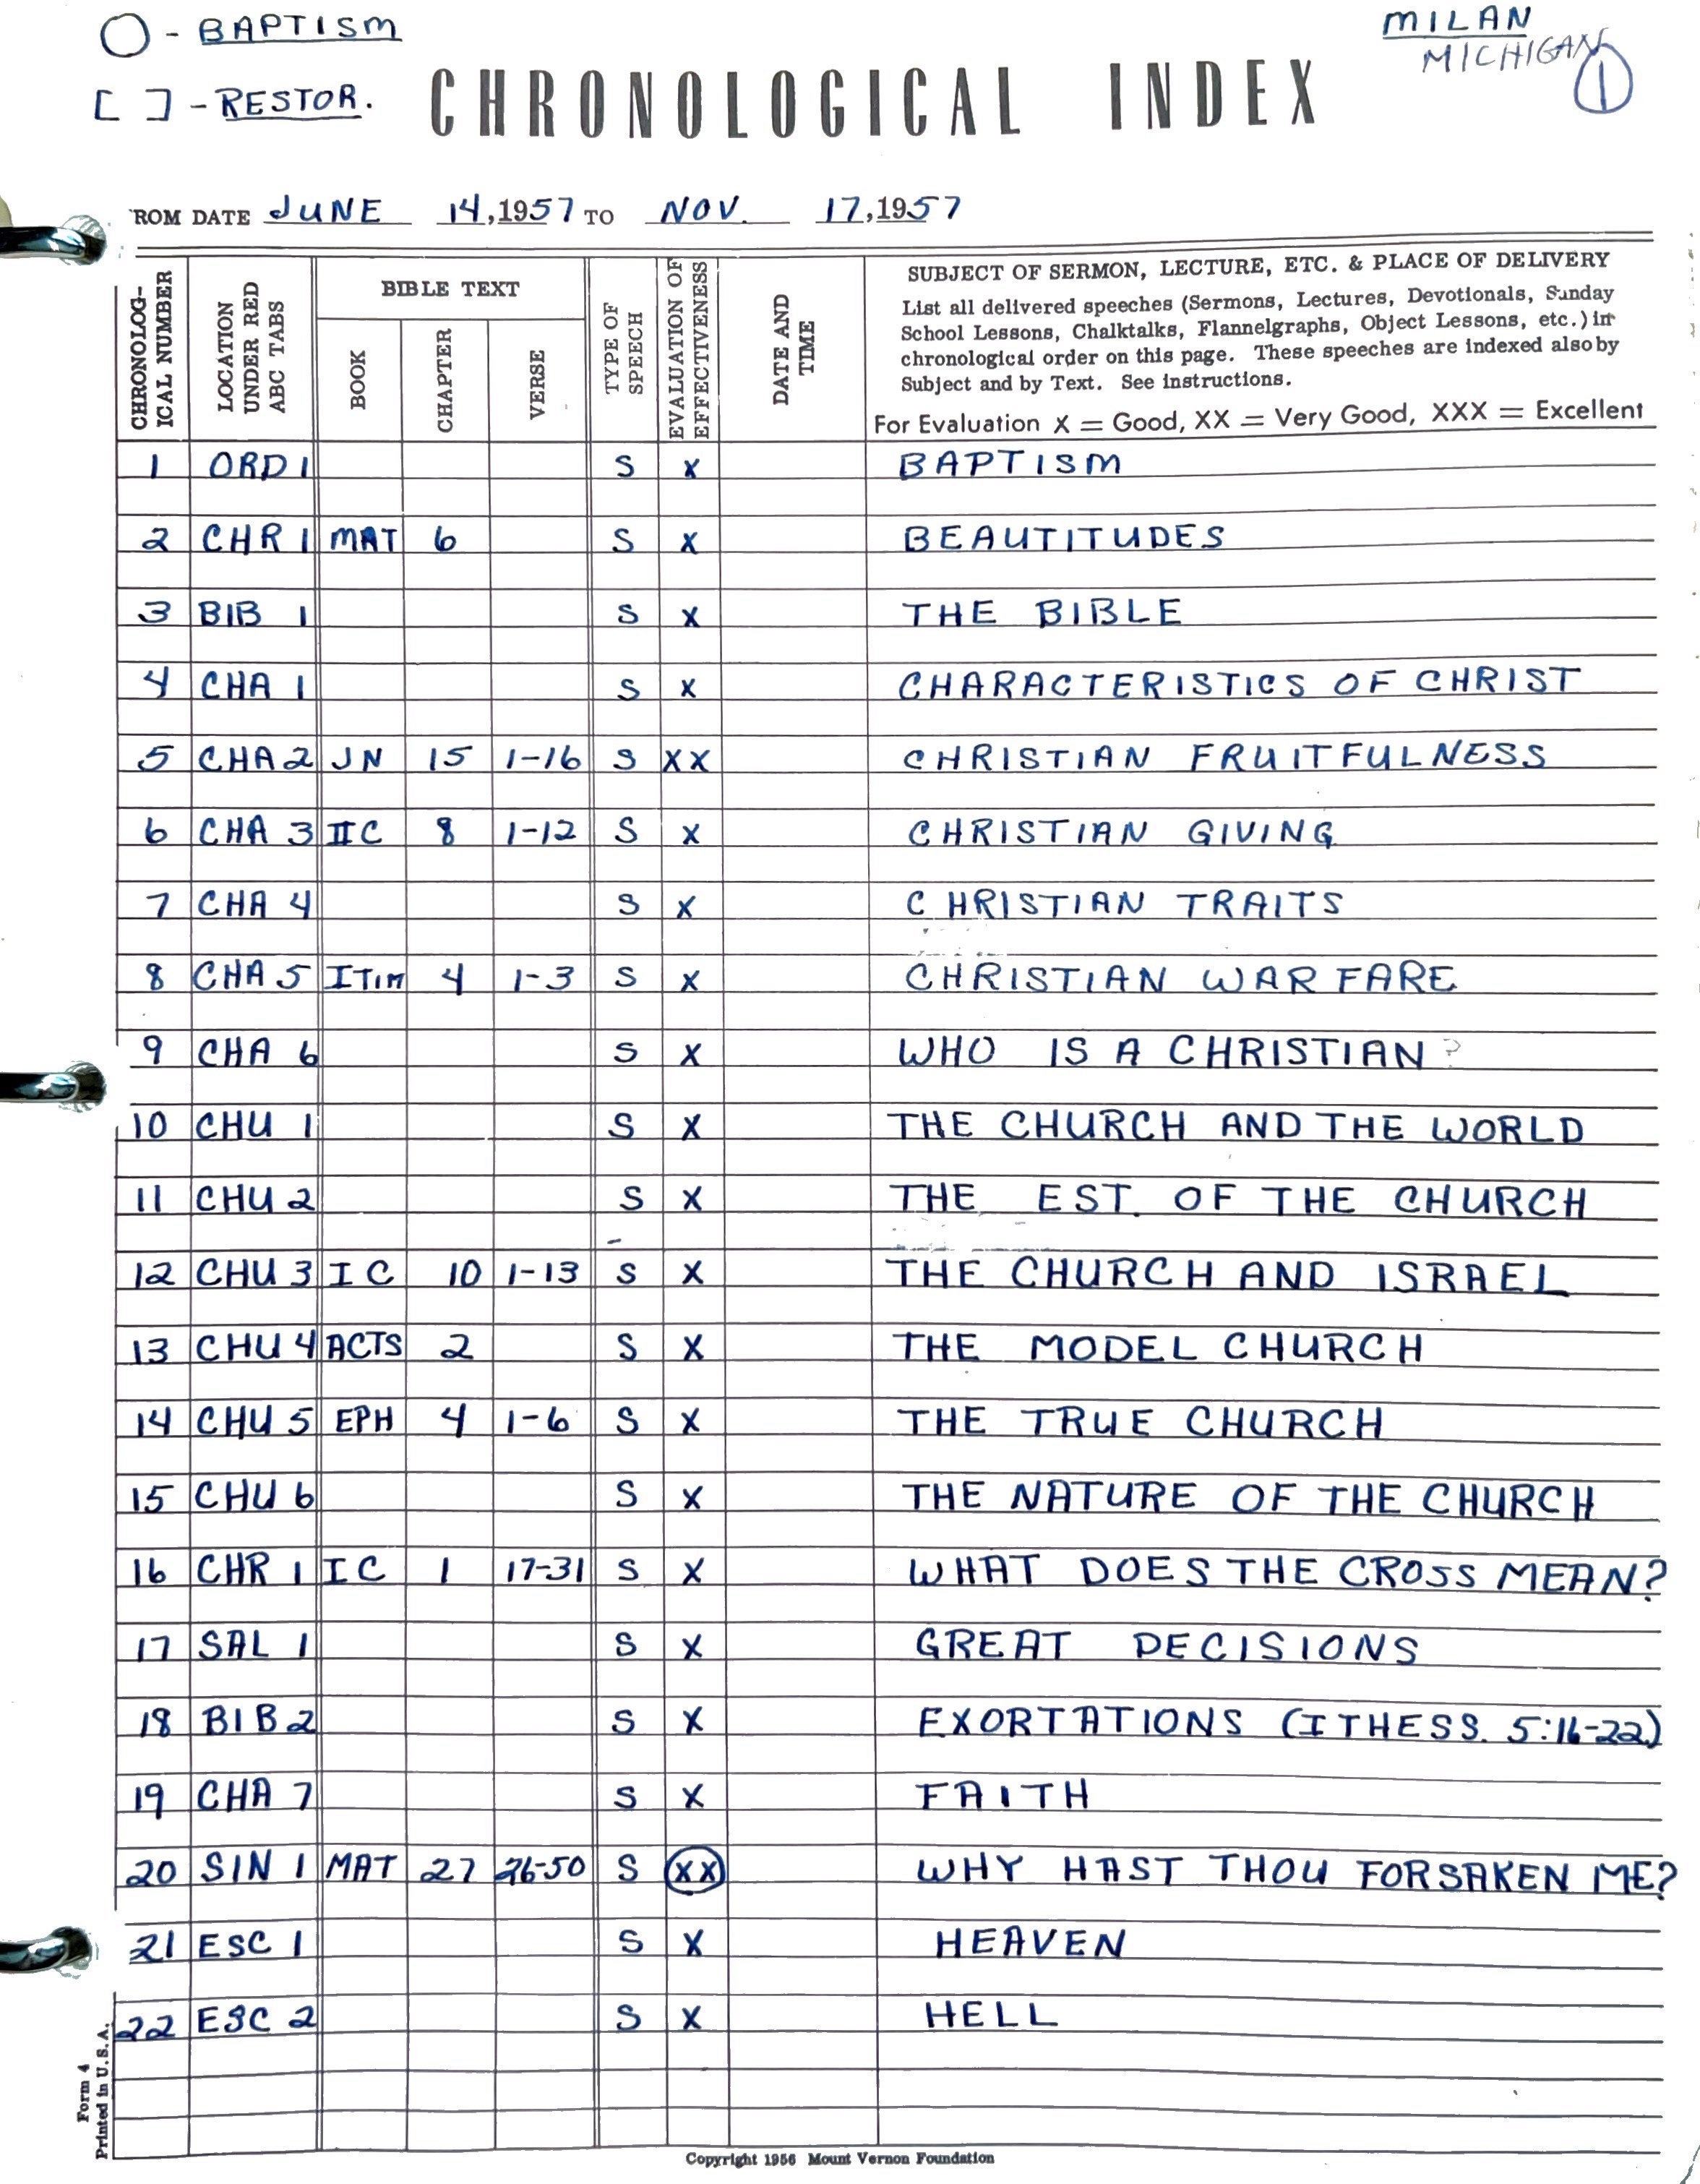 ◯ - BAPTISM
MILAN
MICHIGAN
1
[ ] - RESTOR.
CHRONOLOGICAL INDEX
ROM DATE JUNE 14, 1957 TO NOV. 17, 1957
CHRONOLOG-ICAL NUMBER
LOCATION UNDER RED ABC TABS
BIBLE TEXT
BOOK
CHAPTER
VERSE
TYPE OF SPEECH
EVALUATION OF EFFECTIVENESS
DATE AND TIME
SUBJECT OF SERMON, LECTURE, ETC. & PLACE OF DELIVERY
List all delivered speeches (Sermons, Lectures, Devotionals, Sunday
School Lessons, Chalktalks, Flannelgraphs, Object Lessons, etc.) in
chronological order on this page. These speeches are indexed also by
Subject and by Text. See instructions.
For Evaluation X = Good, XX = Very Good, XXX = Excellent
1 ORD 1 S X BAPTISM
2 CHR 1 MAT 6 S X BEAUTITUDES
3 BIB 1 S X THE BIBLE
4 CHA 1 S X CHARACTERISTICS OF CHRIST
5 CHA 2 JN 15 1-16 S XX CHRISTIAN FRUITFULNESS
6 CHA 3 II C 8 1-12 S X CHRISTIAN GIVING
7 CHA 4 S X CHRISTIAN TRAITS
8 CHA 5 I TIM 4 1-3 S X CHRISTIAN WARFARE
9 CHA 6 S X WHO IS A CHRISTIAN?
10 CHU 1 S X THE CHURCH AND THE WORLD
11 CHU 2 S X THE EST. OF THE CHURCH
12 CHU 3 I C 10 1-13 S X THE CHURCH AND ISRAEL
13 CHU 4 ACTS 2 S X THE MODEL CHURCH
14 CHU 5 EPH 4 1-6 S X THE TRUE CHURCH
15 CHU 6 S X THE NATURE OF THE CHURCH
16 CHR 1 I C 1 17-31 S X WHAT DOES THE CROSS MEAN?
17 SAL 1 S X GREAT DECISIONS
18 BIB 2 S X EXORTATIONS (I THESS. 5:16-22)
19 CHA 7 S X FAITH
20 SIN 1 MAT 27 26-50 S XX WHY HAST THOU FORSAKEN ME?
21 ESC 1 S X HEAVEN
22 ESC 2 S X HELL
Form 4
Printed in U.S.A.
Copyright 1956 Mount Vernon Foundation